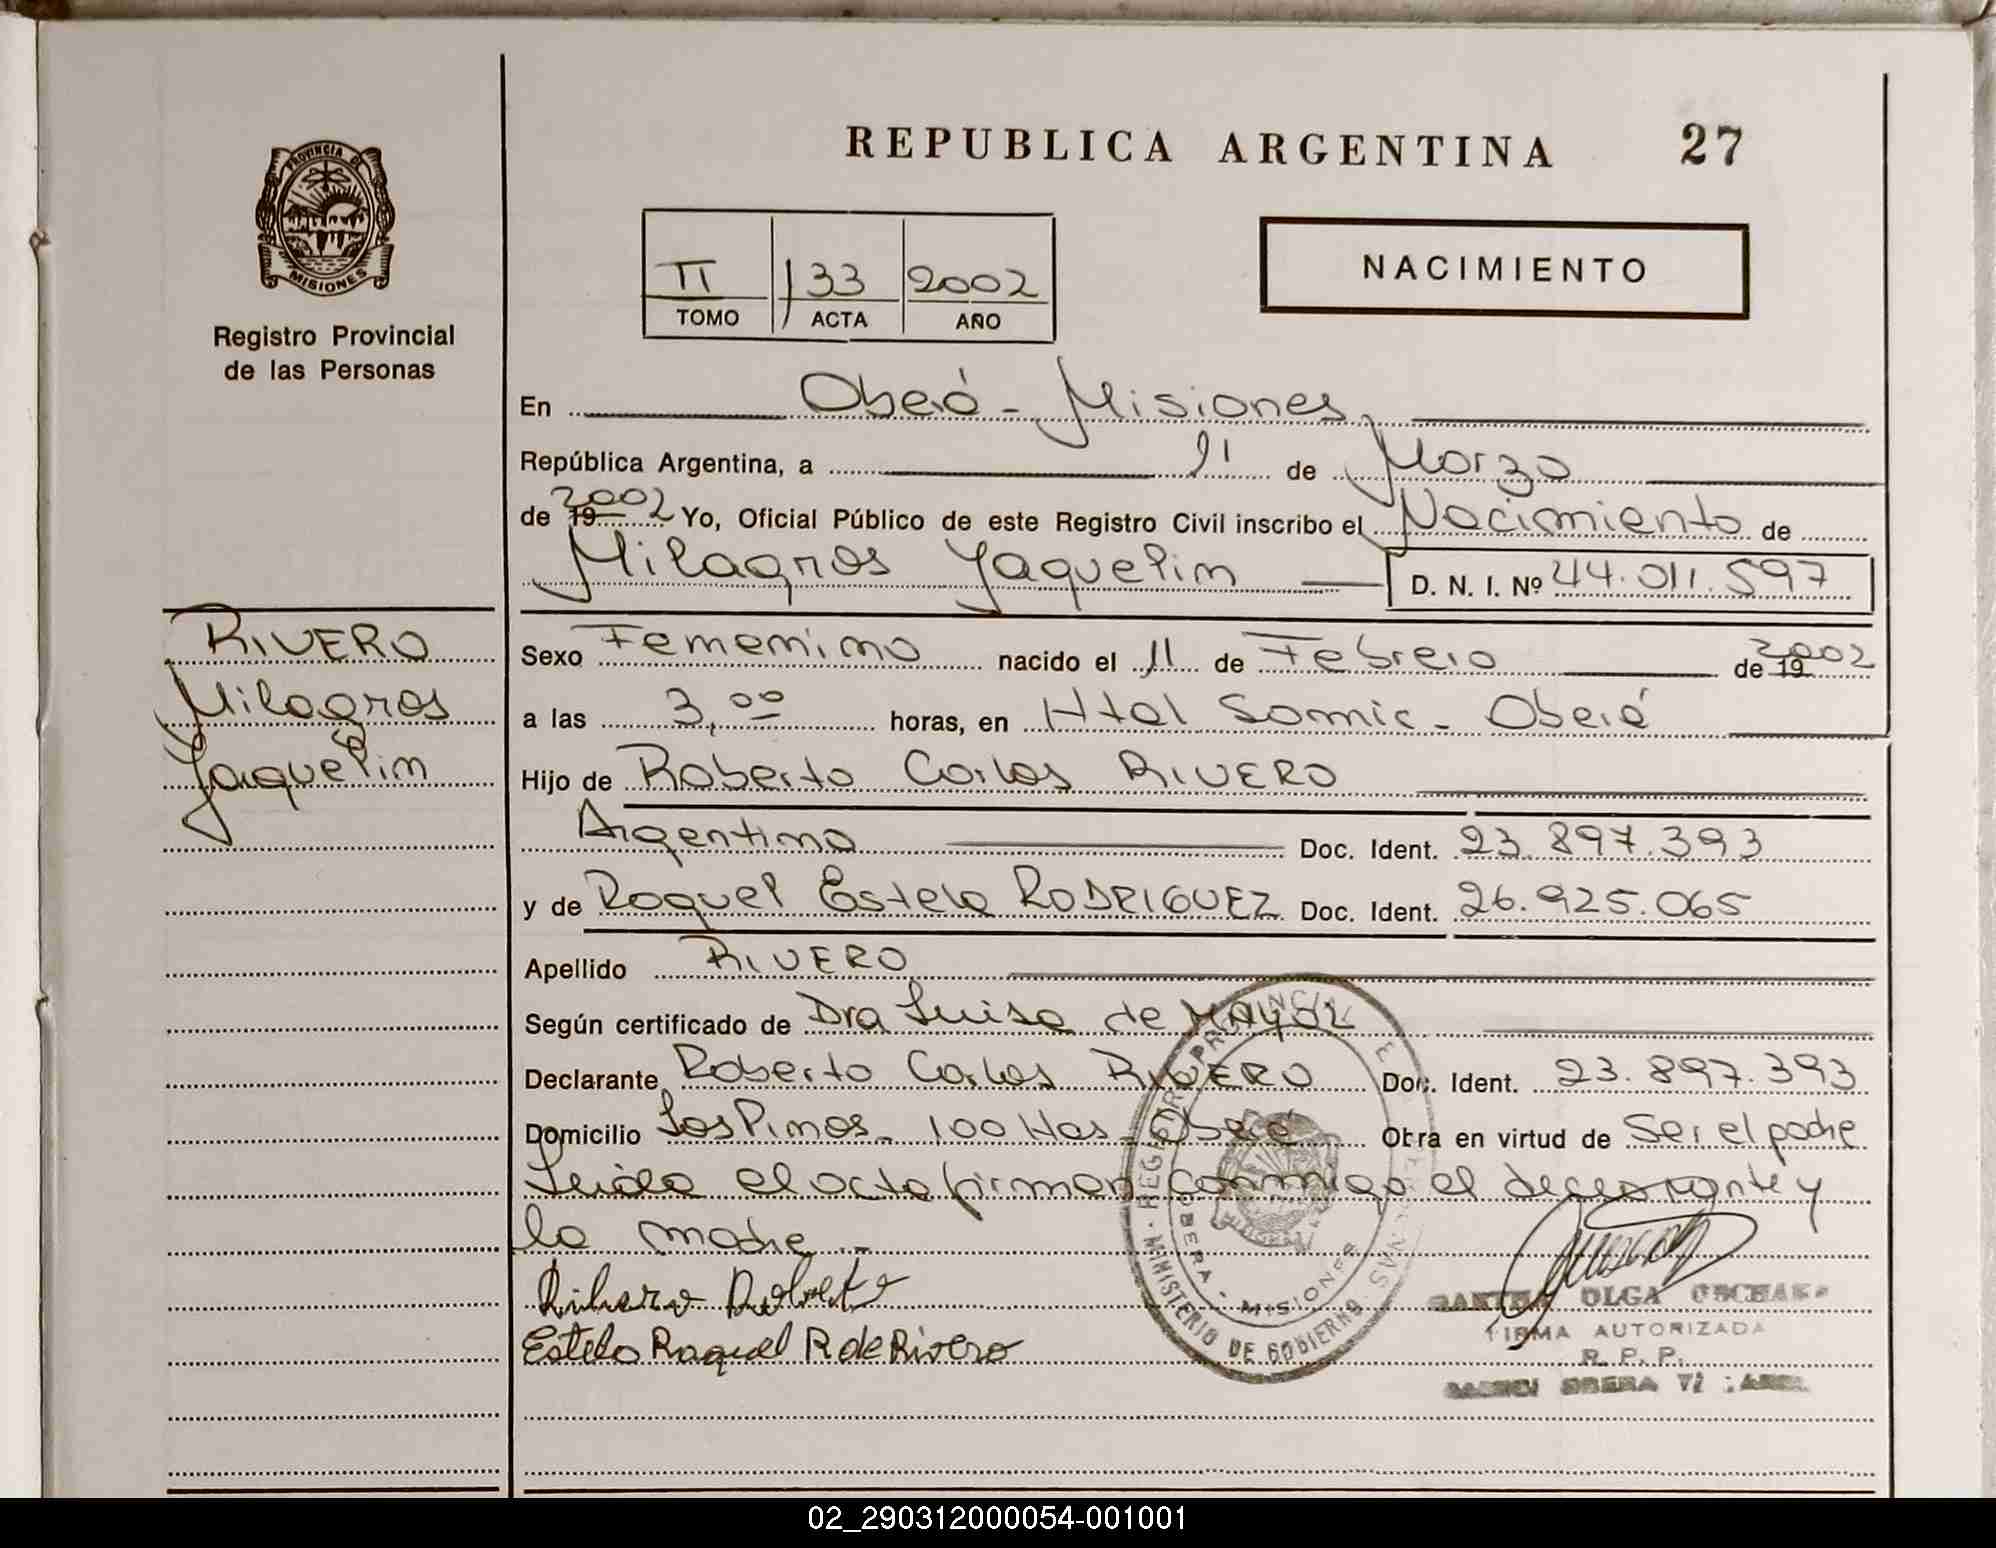 REPUBLICA ARGENTINA 27
PROVINCIA DE
MISIONES
Registro Provincial
de las Personas
II 133 2002
TOMO ACTA AÑO
NACIMIENTO
En Oberá - Misiones,
República Argentina, a 21 de Marzo
de 19 2002 Yo, Oficial Público de este Registro Civil inscribo el Nacimiento de
Milagros Yaquelin D. N. I. Nº 44.011.597
RIVERO
Milagros
Yaquelin
Sexo Femenino nacido el 11 de Febrero de 19 2002
a las 3,00 horas, en Htal Samic - Oberá
Hijo de Roberto Carlos RIVERO
Argentino Doc. Ident. 23.897.393
y de Raquel Estela RODRIGUEZ Doc. Ident. 26.925.065
Apellido RIVERO
Según certificado de Dra Luisa de MAYOL
Declarante Roberto Carlos RIVERO Doc. Ident. 23.897.393
Domicilio Los Pinos - 100 Has - Oberá Obra en virtud de Ser el padre
Leida el acta firman conmigo el declarante y
la madre.-
Rivero Roberto
Estela Raquel R de Rivero
REGISTRO PROVINCIAL DE LAS PERSONAS
MINISTERIO DE GOBIERNO
OBERA - MISIONES
OLGA
FIRMA AUTORIZADA
R. P. P.
OBERA
02_290312000054-001001